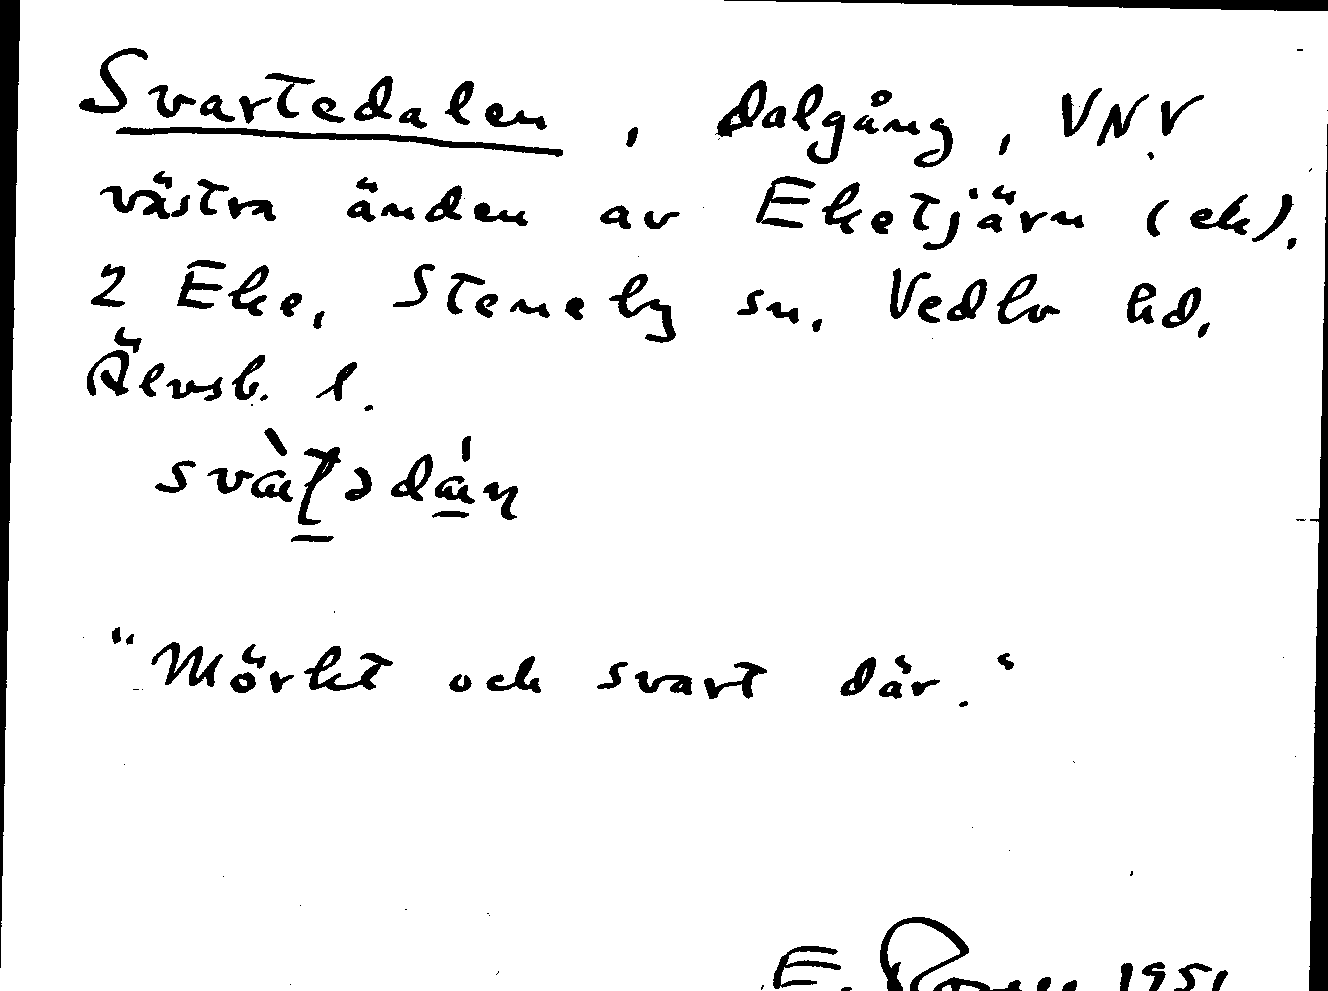 Svartedalen, dalgång, VNV
västra änden av Eketjärn (ek).
2 Eke, Steneby sn. Vedbo hd.
Älvsb. l.
"Mörkt och svart där."
E. 1951